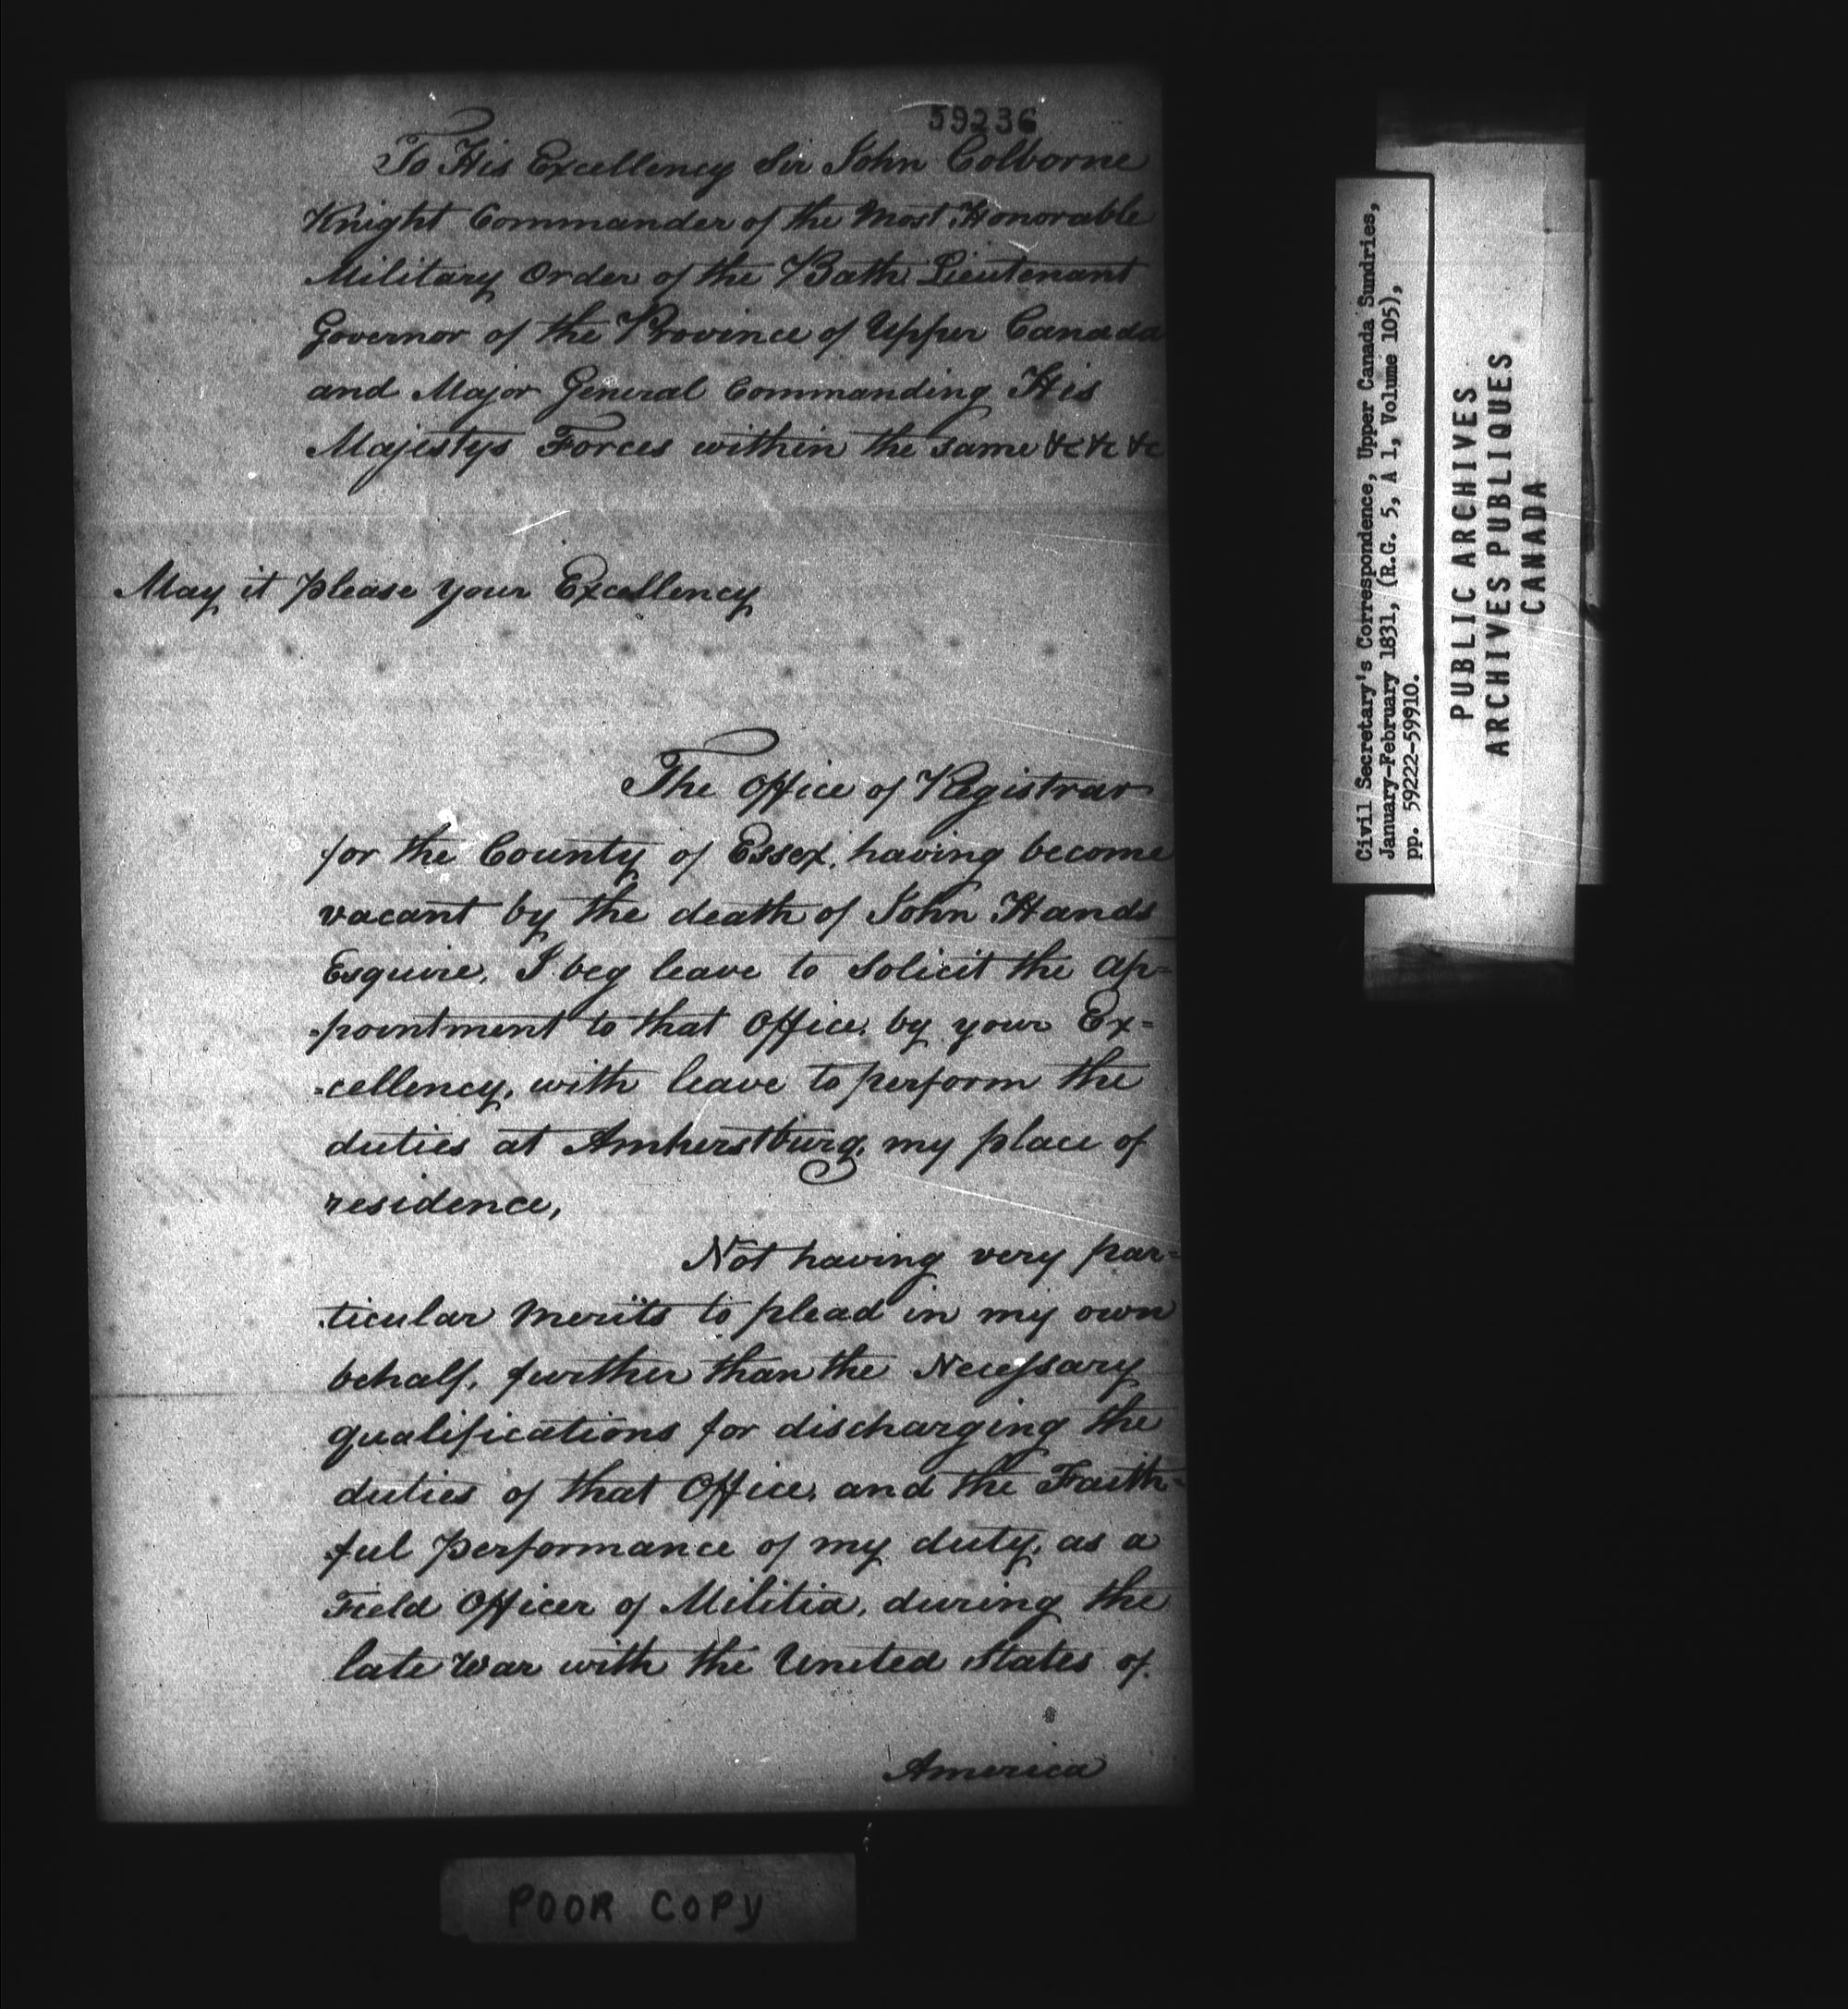 59236
To His Excellency Sir John Colborne
Knight Commander of the Most Honorable
Military Order of the Bath Lieutenant
Governor of the Province of Upper Canada
and Major General Commanding His
Majestys Forces within the same &c &c &c
May it please your Excellency
The Office of Registrar
for the County of Essex, having become
vacant by the death of John Hands
Esquire, I beg leave to solicit the ap=
=pointment to that Office, by your Ex=
=cellency, with leave to perform the
duties at Amherstburg, my place of
residence,
Not having very par=
ticular merits to plead in my own
behalf, further than the Necessary
qualifications for discharging the
duties of that Office, and the Faith=
ful performance of my duty, as a
Field Officer of Militia, during the
late War with the United States of
America
POOR COPY
Civil Secretary's Correspondence, Upper Canada Sundries,
January-February 1831, (R.G. 5, A 1, Volume 105),
pp. 59222-59910.
PUBLIC ARCHIVES
ARCHIVES PUBLIQUES
CANADA